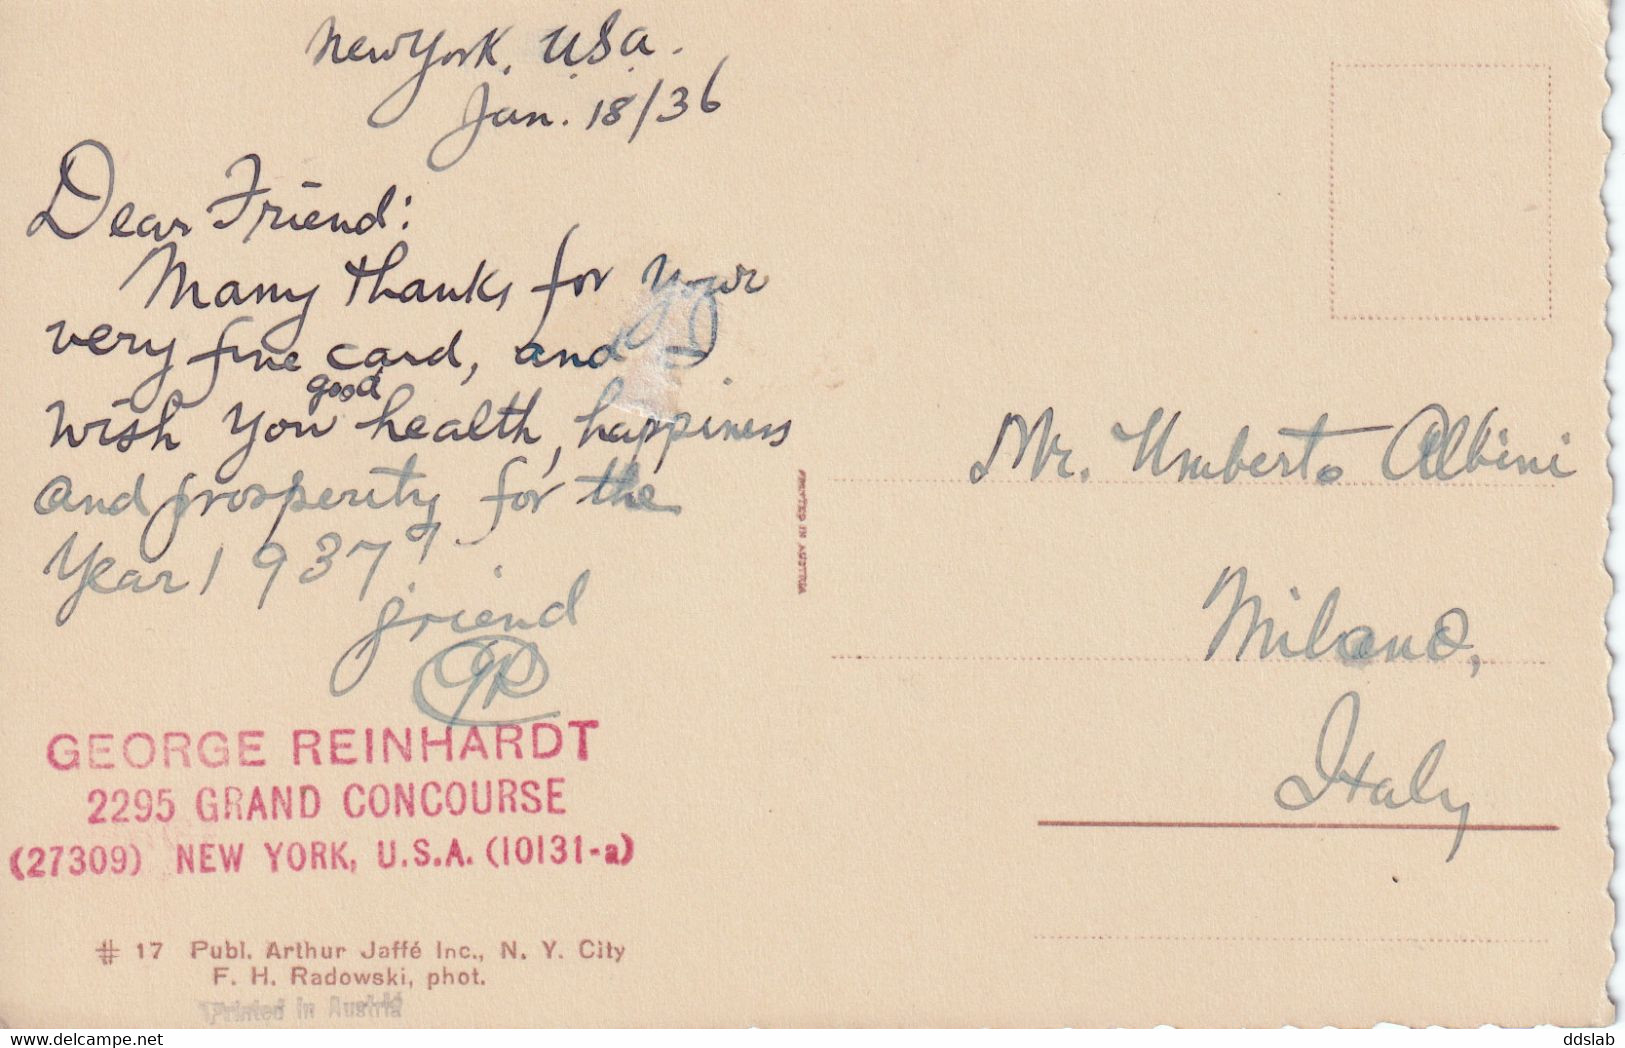 New York, U.S.a.
Jan. 18/36
Dear Friend:
Many thanks for your
very fine card, and I
wish you good health, happiness
and prosperity for the
Year 1937!
friend
GR
GEORGE REINHARDT
2295 GRAND CONCOURSE
(27309) NEW YORK, U.S.A. (10131-a)
# 17 Publ. Arthur Jaffé Inc., N. Y. City
F. H. Radowski, phot.
Printed in Austria
PRINTED IN AUSTRIA
Mr. Umberto Albini
Milano,
Italy
delcampe.net
ddslab